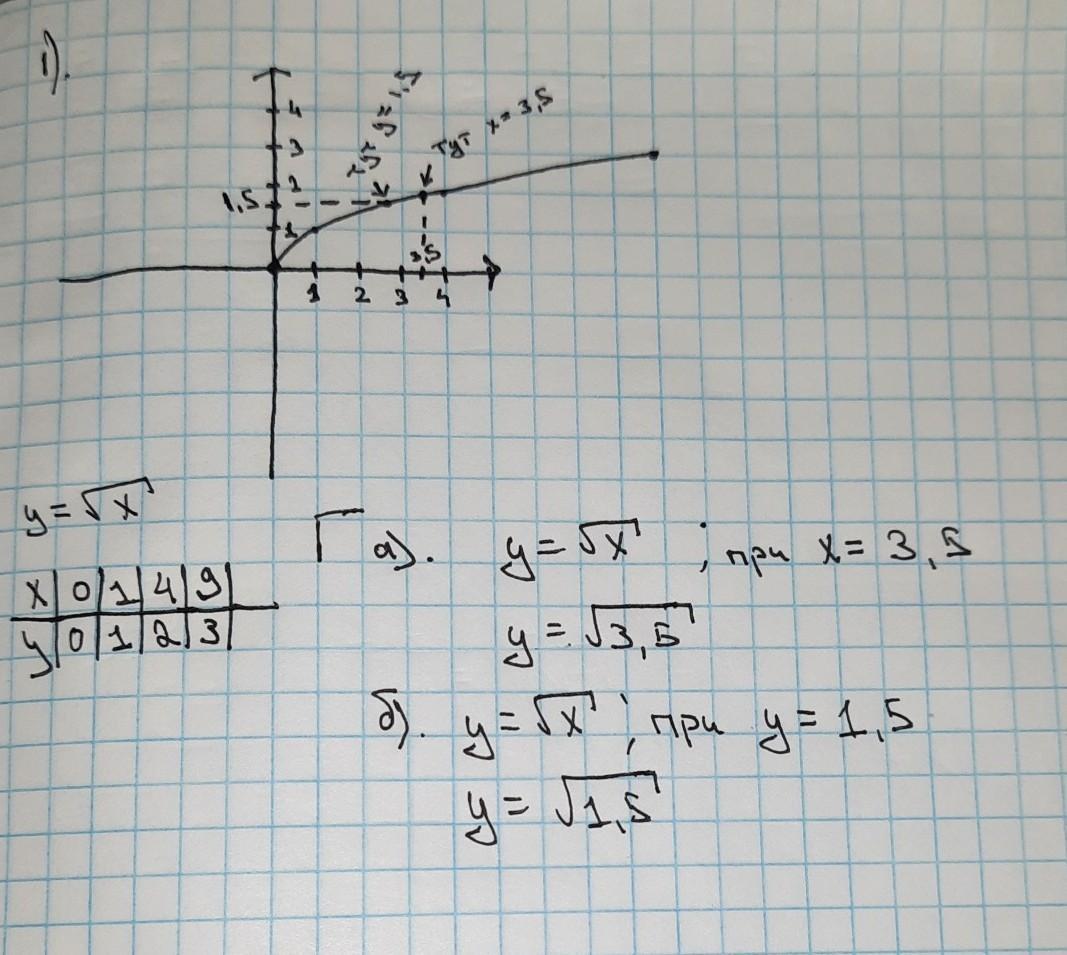 1).
4
3
2
1,5
1
тут y = 1,5
тут x = 3,5
3,5
1 2 3 4
y = √x
x | 0 | 1 | 4 | 9 |
y | 0 | 1 | 2 | 3 |
а). y = √x ; при x = 3,5
y = √3,5
б). y = √x ; при y = 1,5
y = √1,5